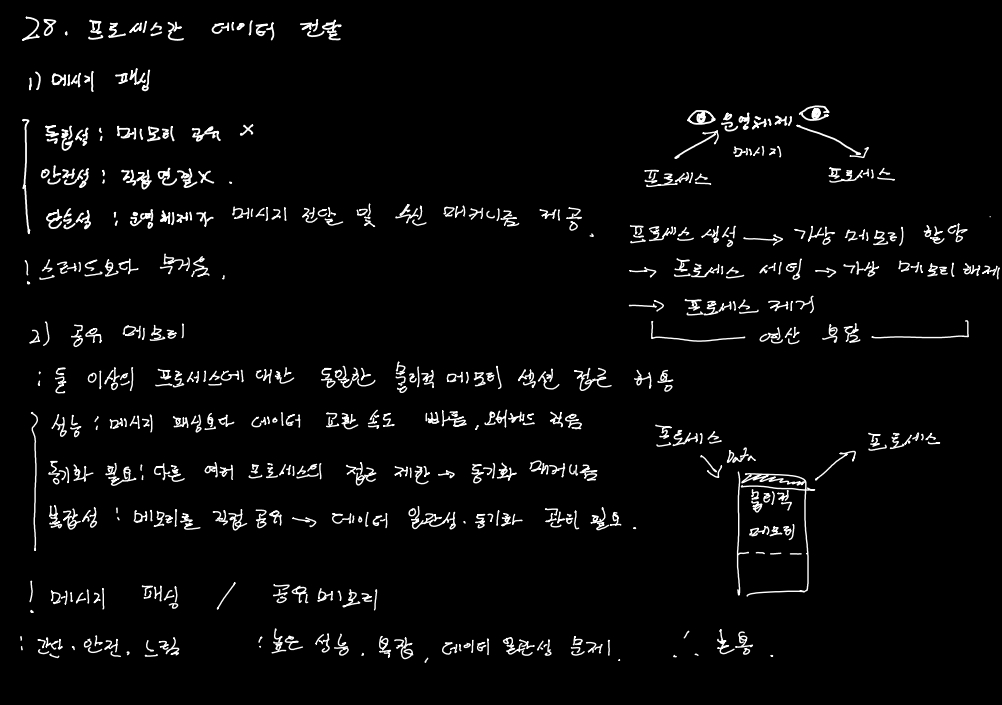 28. 프로세스간 데이터 전달
1) 메시지 패싱
독립성 : 메모리 공유 X
안전성 : 직접 연결 X.
단순성 : 운영체제가 메시지 전달 및 수신 매커니즘 제공.
! 스레드보다 무거움.
운영체제
메시지
프로세스
프로세스
프로세스 생성 → 가상 메모리 할당
→ 프로세스 세팅 → 가상 메모리 해제
→ 프로세스 제거
연산 부담
2) 공유 메모리
: 둘 이상의 프로세스에 대한 동일한 물리적 메모리 섹션 접근 허용
성능 : 메시지 패싱보다 데이터 교환 속도 빠름, 오버헤드 적음
동기화 필요 : 다른 여러 프로세스의 접근 제한 → 동기화 매커니즘
복잡성 : 메모리를 직접 공유 → 데이터 일관성·동기화 관리 필요.
프로세스
Data
프로세스
물리적
메모리
! 메시지 패싱 / 공유 메모리
: 간단·안전, 느림 : 높은 성능, 복잡, 데이터 일관성 문제. ∴ 혼용.